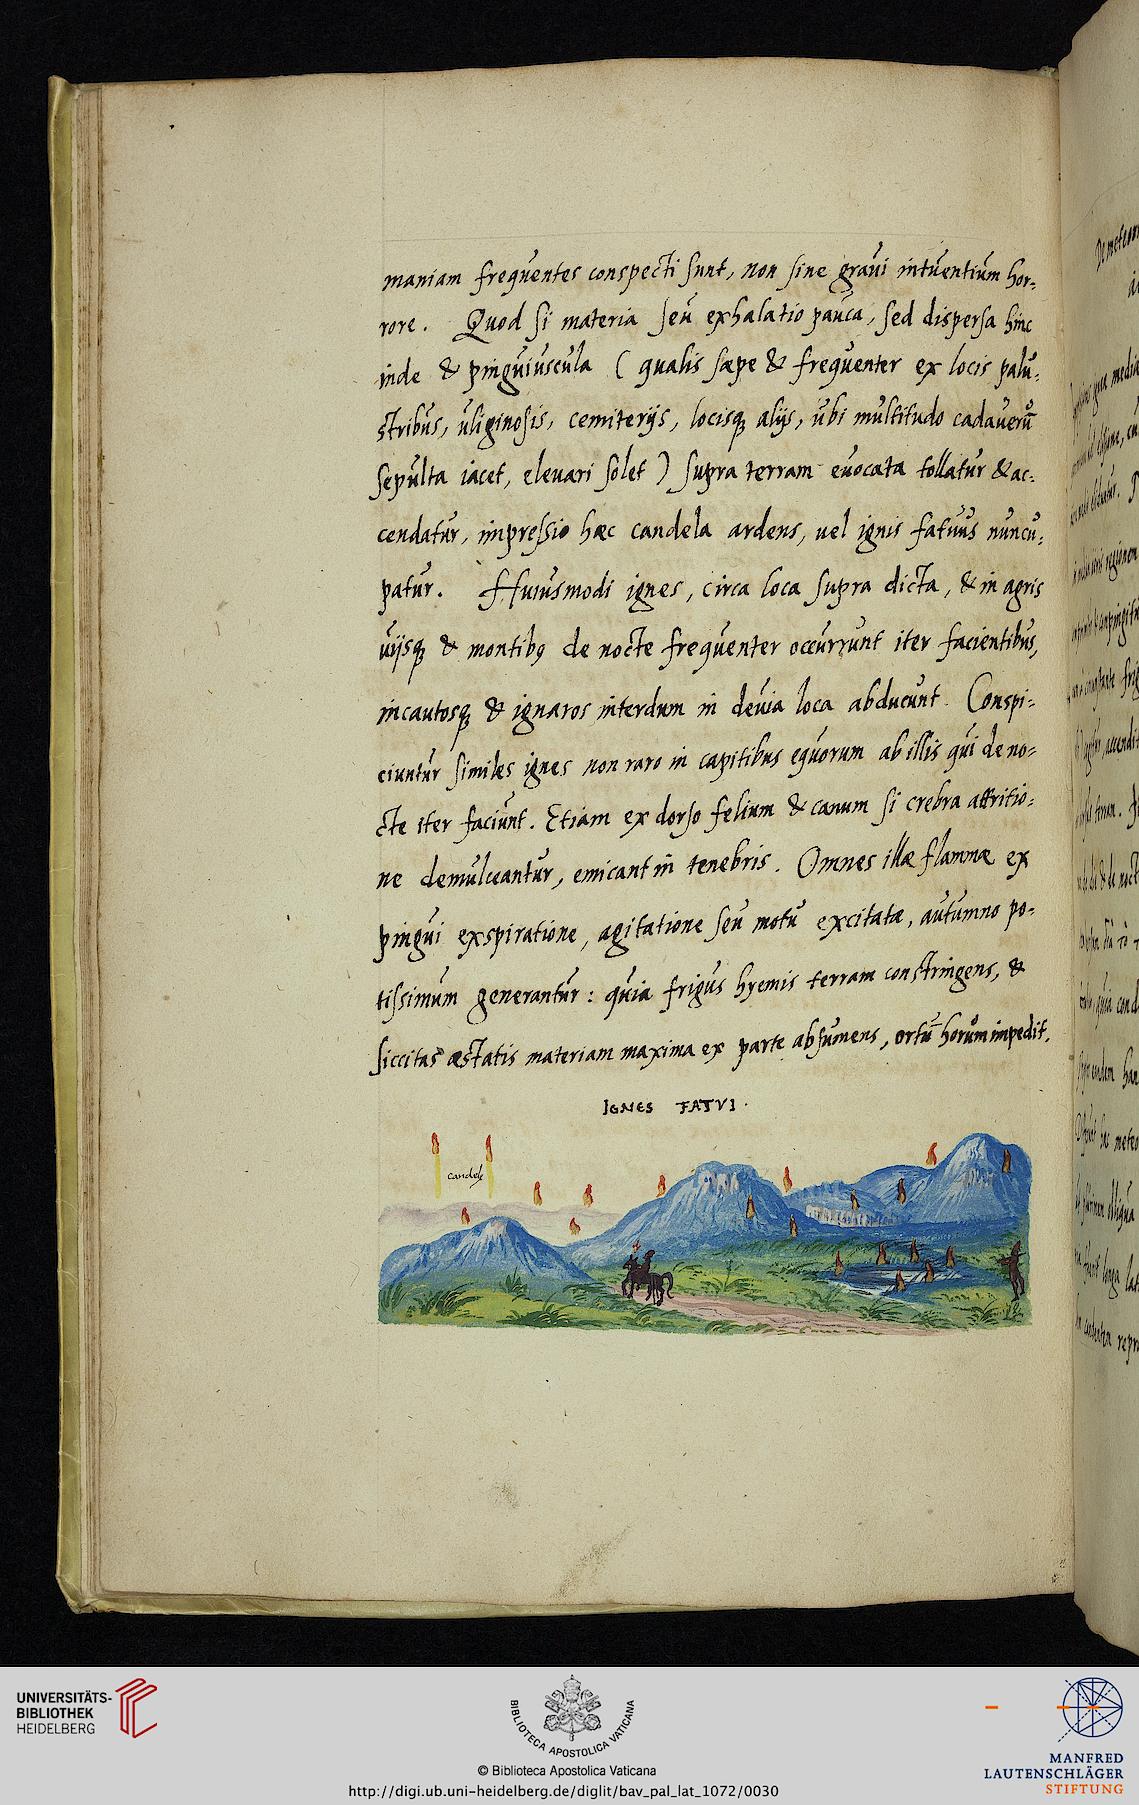 maniam frequentes conspecti sunt, non sine graui intuentium hor-
rore. Quod si materia seu exhalatio pauca, sed dispersa hinc
inde & pinguiuscula ( qualis sæpe & frequenter ex locis palu-
stribus, uliginosis, cemiterijs, locisq; alijs, ubi multitudo cadauerū
sepulta iacet, eleuari solet ) supra terram euocata tollatur & ac-
cendatur, impressio hæc candela ardens, uel ignis fatuus nuncu-
patur. Huiusmodi ignes, circa loca supra dicta, & in agris
uijsq; & montibꝰ de nocte frequenter occurrunt iter facientibus,
incautosq; & ignaros interdum in deuia loca abducunt. Conspi-
ciuntur similes ignes non raro in capitibus equorum ab illis qui de no-
cte iter faciunt. Etiam ex dorso felium & canum si crebra attritio-
ne demulceantur, emicant in tenebris. Omnes illæ flammæ ex
pingui exspiratione, agitatione seu motu excitatæ, autumno po-
tissimum generantur: quia frigus hyemis terram constringens, &
siccitas æstatis materiam maxima ex parte absumens, ortū horum impedit.
IGNES FATVI.
candelę
UNIVERSITÄTS-
BIBLIOTHEK
HEIDELBERG
BIBLIOTECA APOSTOLICA VATICANA
© Biblioteca Apostolica Vaticana
http://digi.ub.uni-heidelberg.de/diglit/bav_pal_lat_1072/0030
MANFRED
LAUTENSCHLÄGER
STIFTUNG